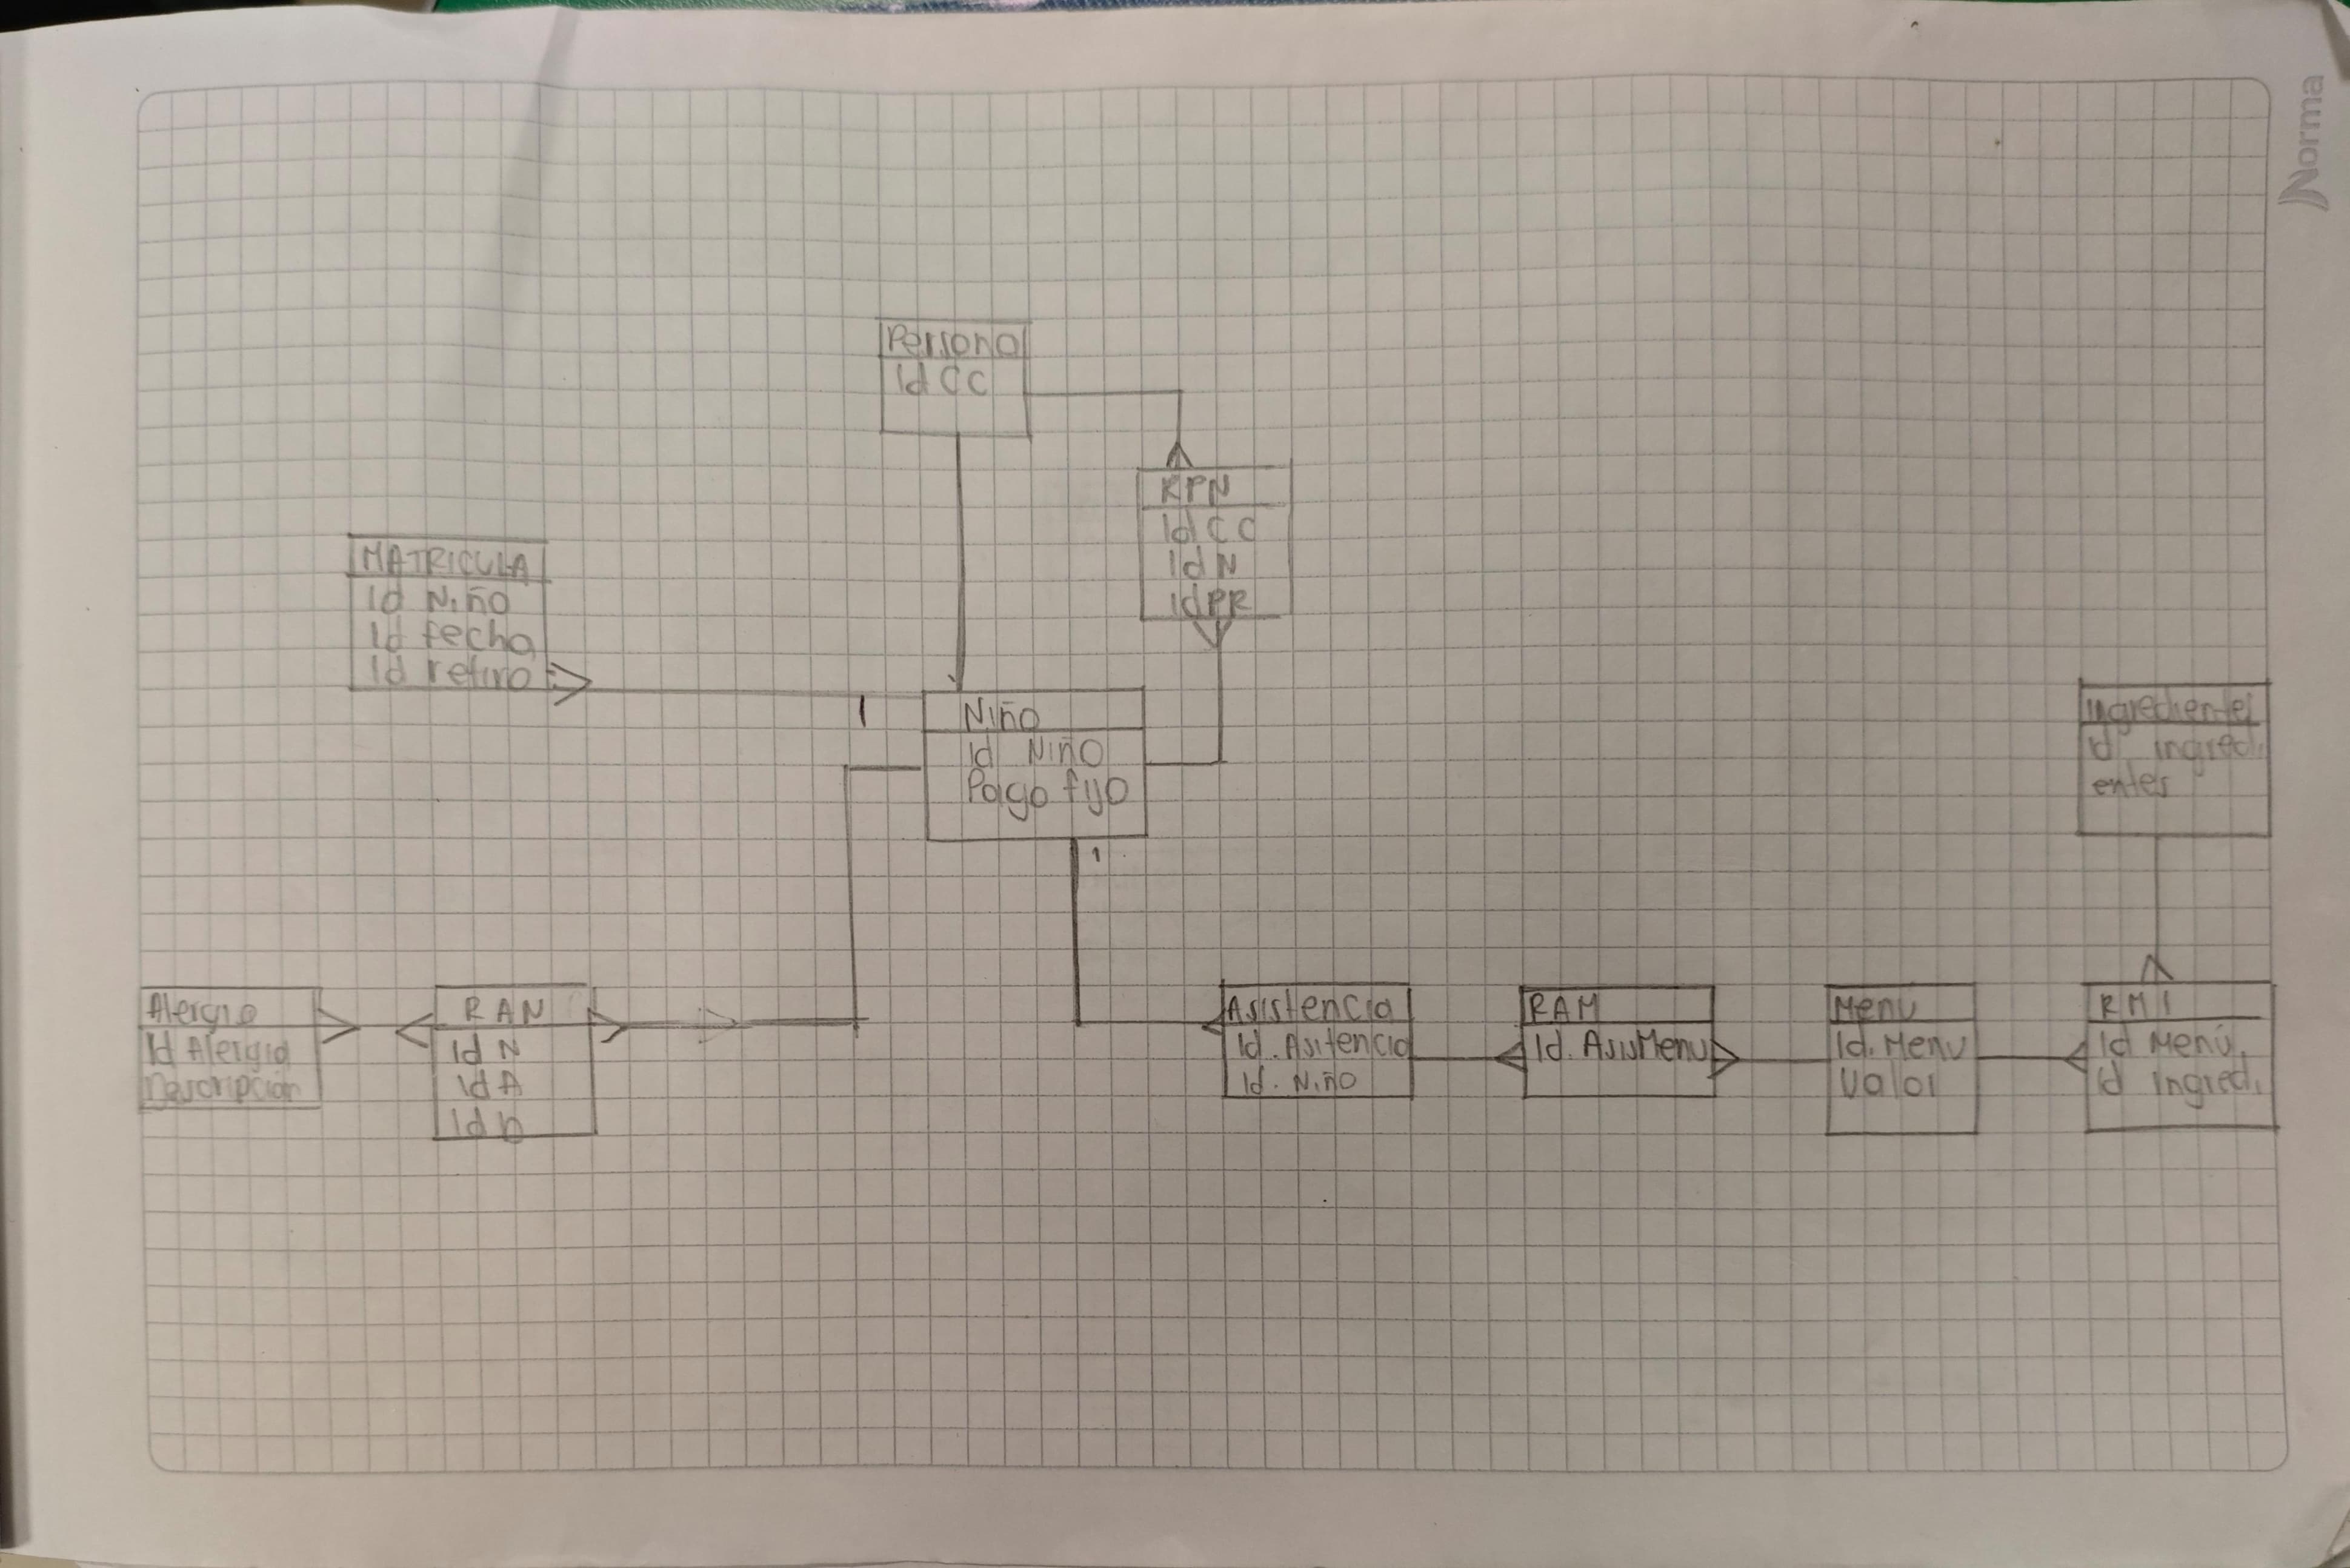 Norma
Persona
Id CC
RPN
Id CC
Id N
Id PR
MATRICULA
Id Niño
Id fecha
Id retiro
1
Niño
Id Niño
Pago fijo
1
Ingredientes
Id ingredi
entes
Alergia
Id Alergia
Descripción
RAN
Id N
Id A
Id D
Asistencia
Id. Asitencia
Id. Niño
RAM
Id. AsisMenu
Menu
Id. Menu
Valor
RMI
Id Menú
Id Ingredi.